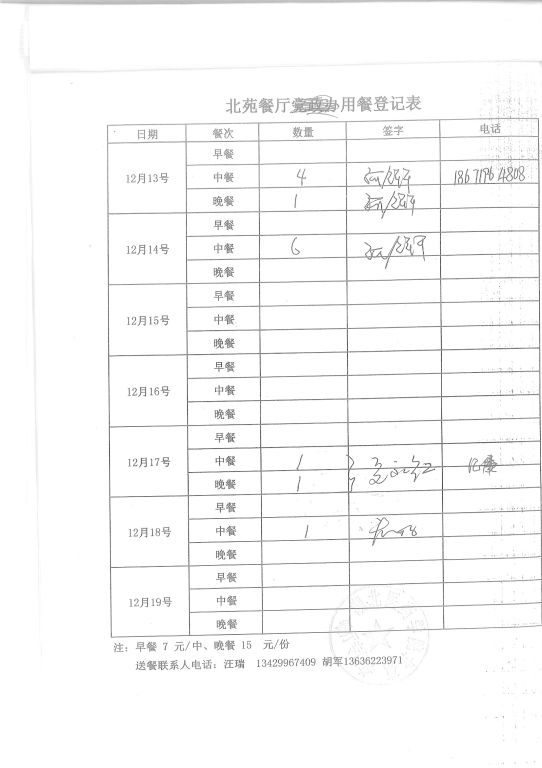 北苑餐厅党政办用餐登记表
日期 餐次 数量 签字 电话
12月13号 早餐
中餐 4 18671964808
晚餐 1
12月14号 早餐
中餐 6
晚餐
12月15号 早餐
中餐
晚餐
12月16号 早餐
中餐
晚餐
12月17号 早餐
中餐 1
晚餐 1
12月18号 早餐
中餐 1
晚餐
12月19号 早餐
中餐
晚餐
注：早餐 7 元/中、晚餐 15 元/份
送餐联系人电话：汪瑞 13429967409 胡军13636223971